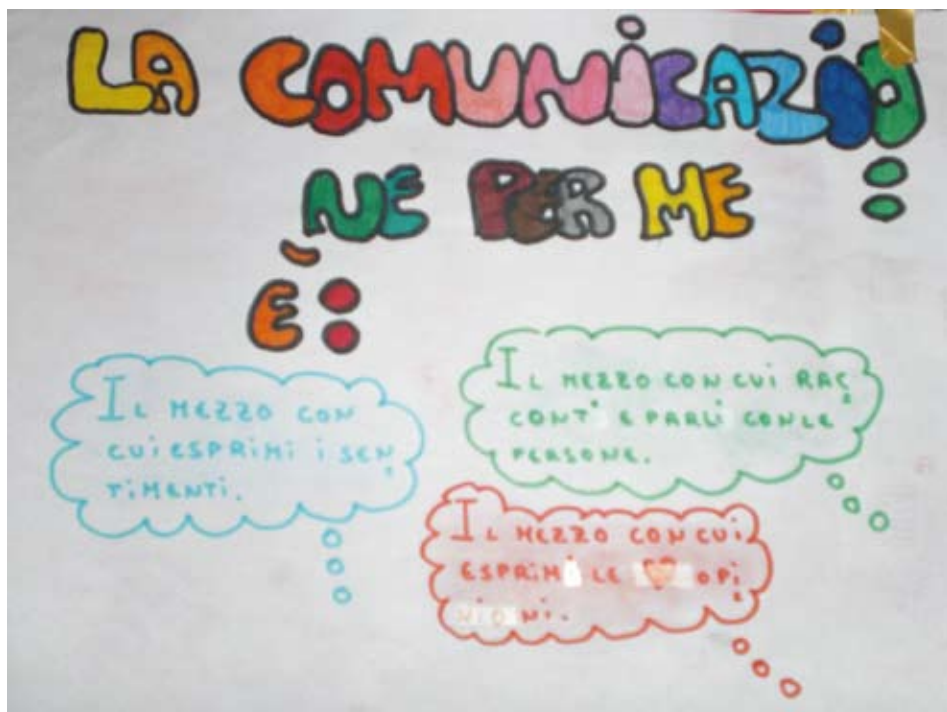 LA COMUNICAZIO=
NE PER ME
È:
IL MEZZO CON
CUI ESPRIMI I SEN=
TIMENTI.
IL MEZZO CON CUI RAC=
CONTI E PARLI CON LE
PERSONE.
IL MEZZO CON CUI
ESPRIMI LE OPI=
NIONI.